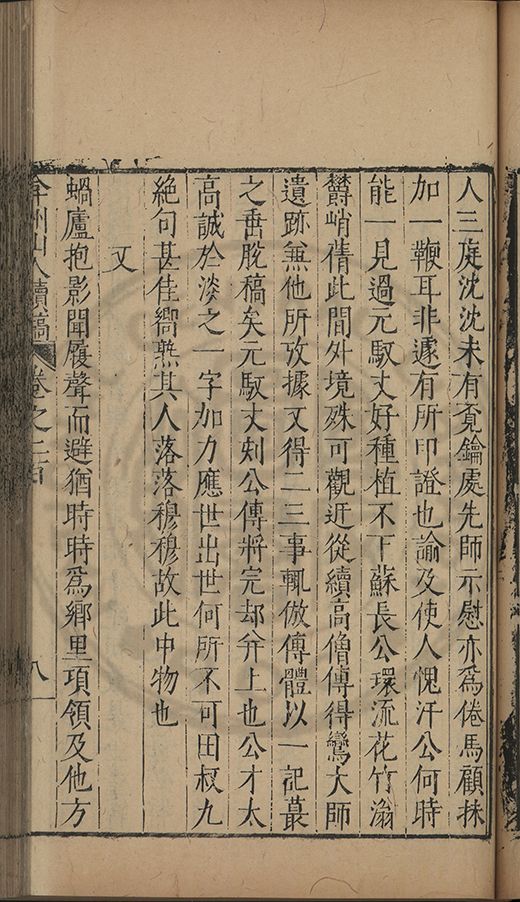 人三庭沈沈未有覔鑰處先師示慰亦爲倦馬顧抹
加一鞭耳非遽有所印證也諭及使人愧汗公何時
能一見過元馭丈好種植不下蘇長公環流花竹滃
欝峭蒨此間外境殊可觀近從續高僧傳得鸞大師
遺跡無他所攷據又得二三事輒倣傳體以一記㝡
之畨脫稿矣元馭丈刻公傳將完却弁上也公才太
高誠於淡之一字加力應世出世何所不可田叔九
絶句甚佳嚮𤍠其人落落穆穆故此中物也
又
蝸廬抱影聞履聲而避猶時時爲鄉里項領及他方
弇州山人續稿 卷之二百 八